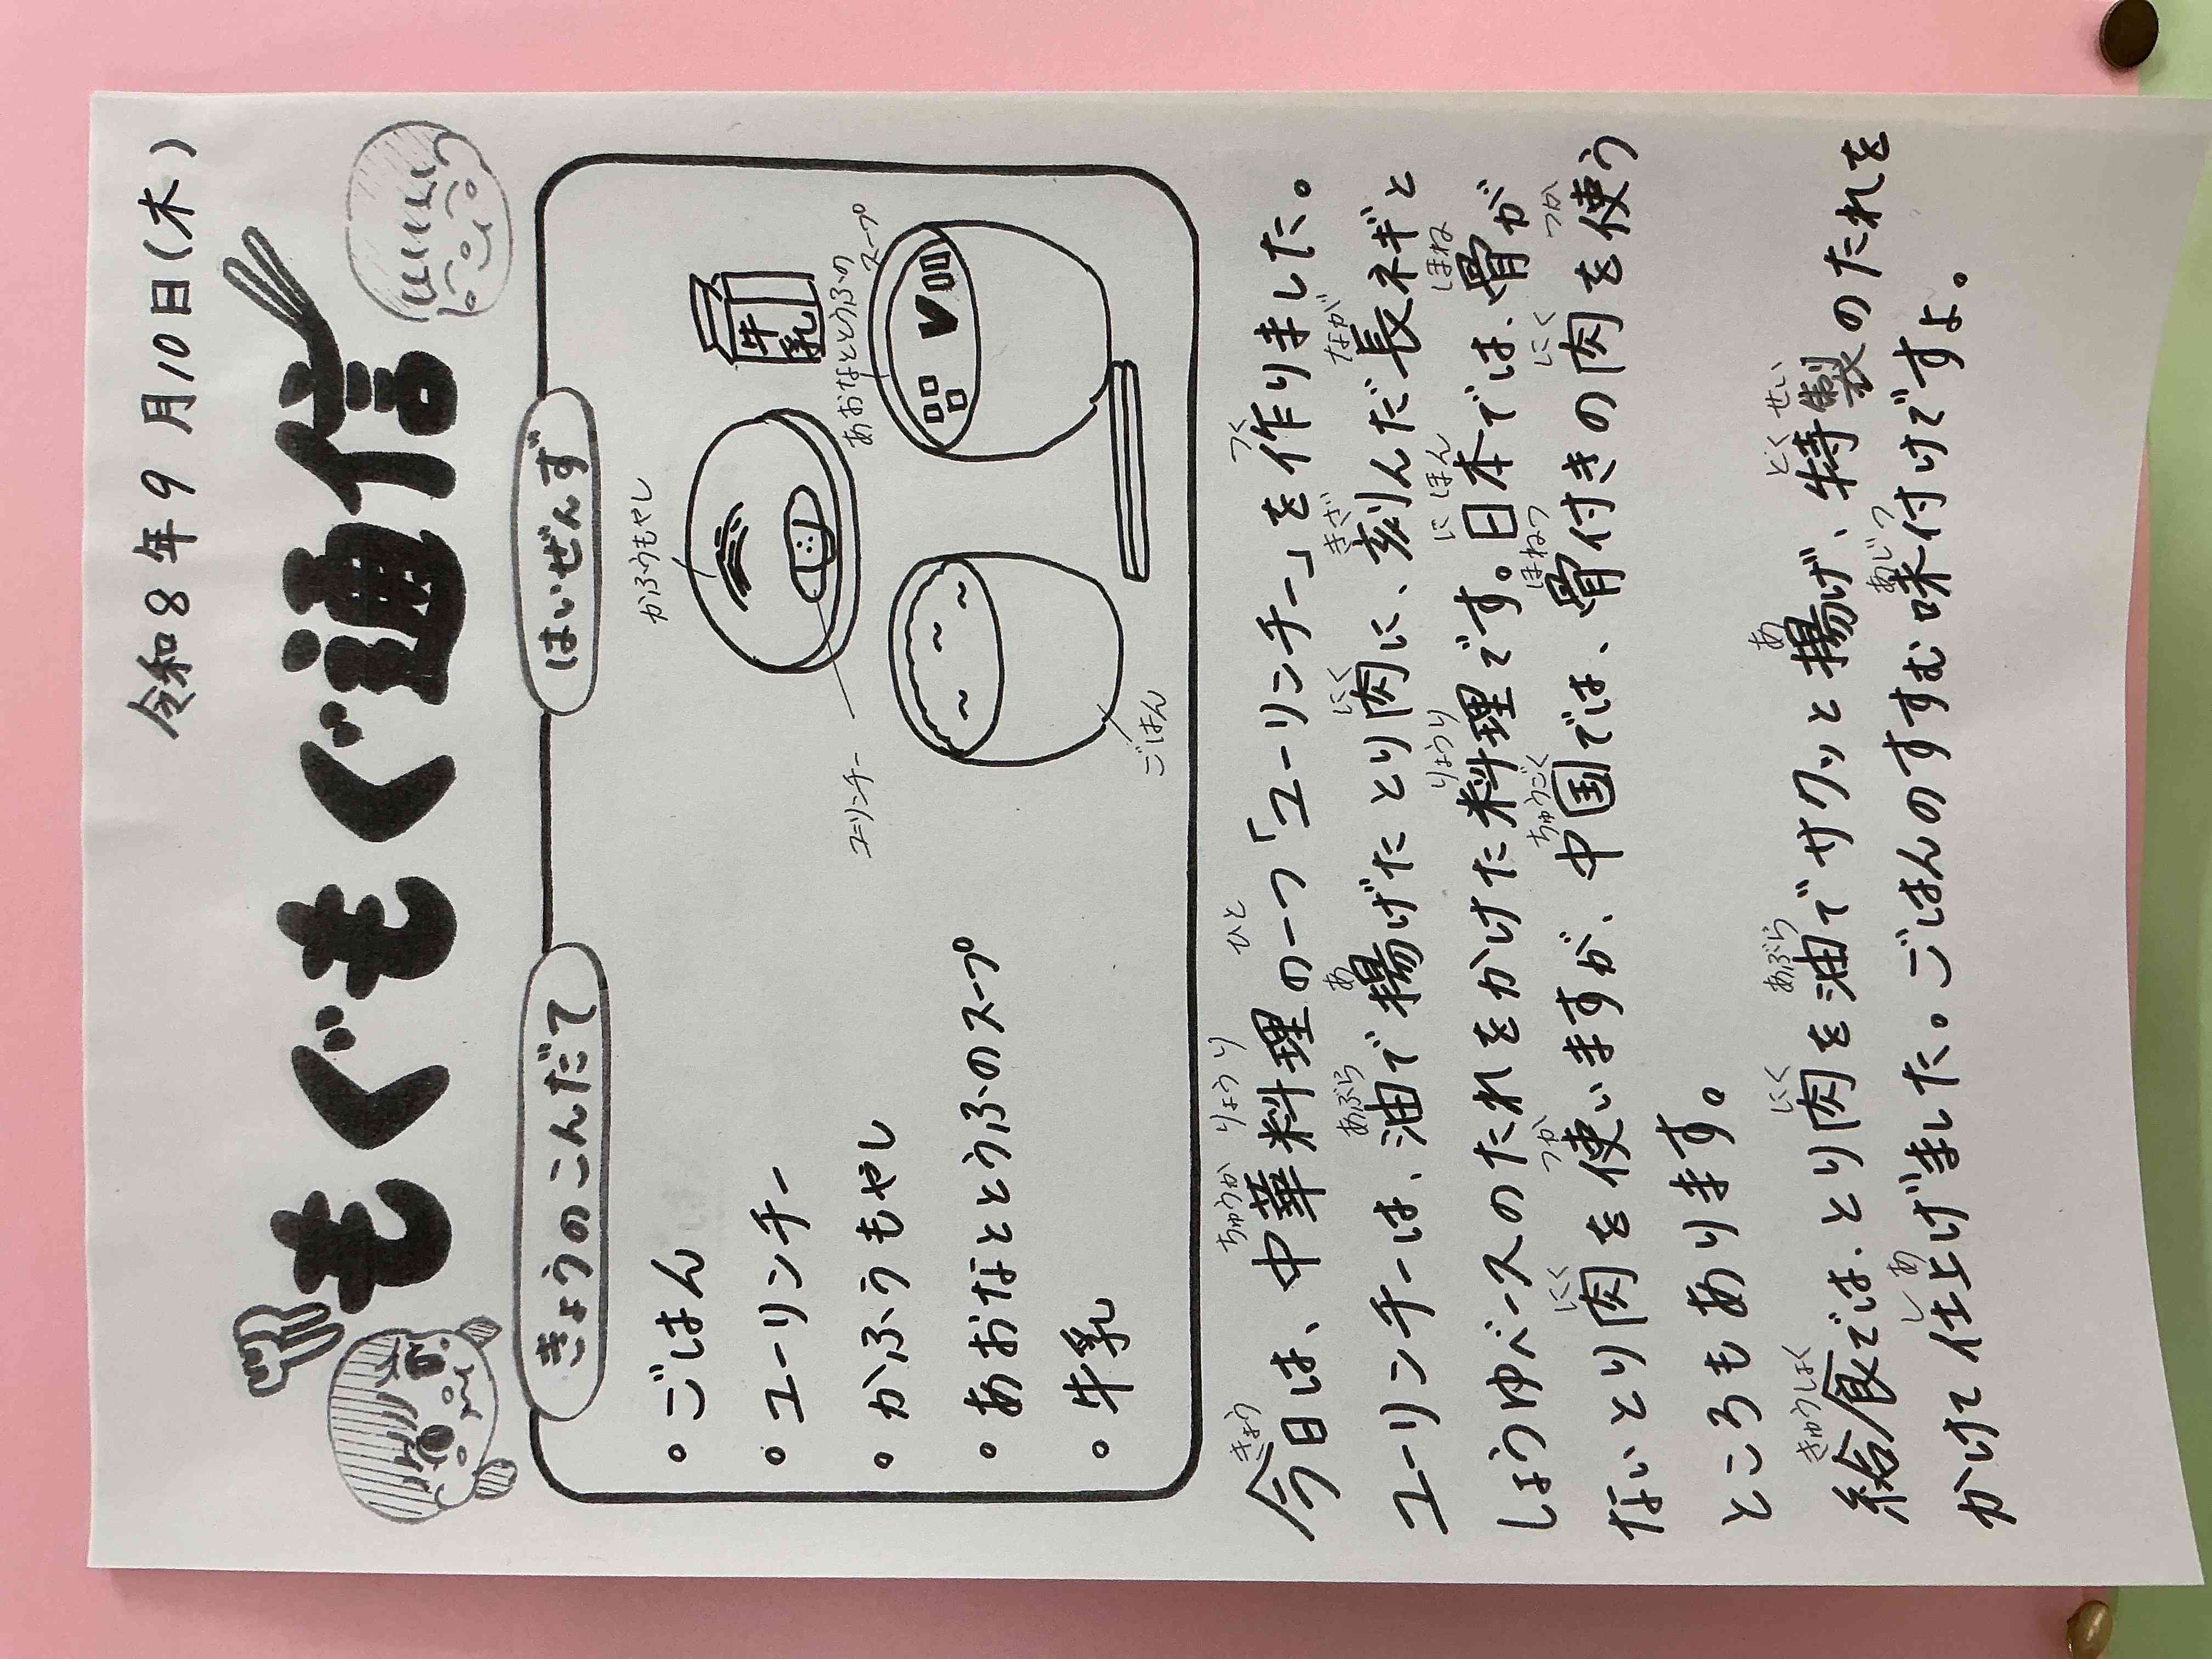 令和8年9月10日(木)
もぐもぐ通信
きょうのこんだて
・ごはん
・ユーリンチー
・かふうもやし
・あおなととうふのスープ
・牛乳
はいぜんず
かふうもやし
牛乳
ユーリンチー
あおなととうふの
スープ
ごはん
今日は、中華料理の一つ「ユーリンチー」を作りました。
ユーリンチーは、油で揚げたとり肉に、刻んだ長ネギと
しょうゆベースのたれをかけた料理です。日本では、骨が
ないとり肉を使いますが、中国では、骨付きの肉を使う
ところもあります。
給食では、とり肉を油でサクッと揚げ、特製のたれを
かけて仕上げました。ごはんのすすむ味付けですよ。